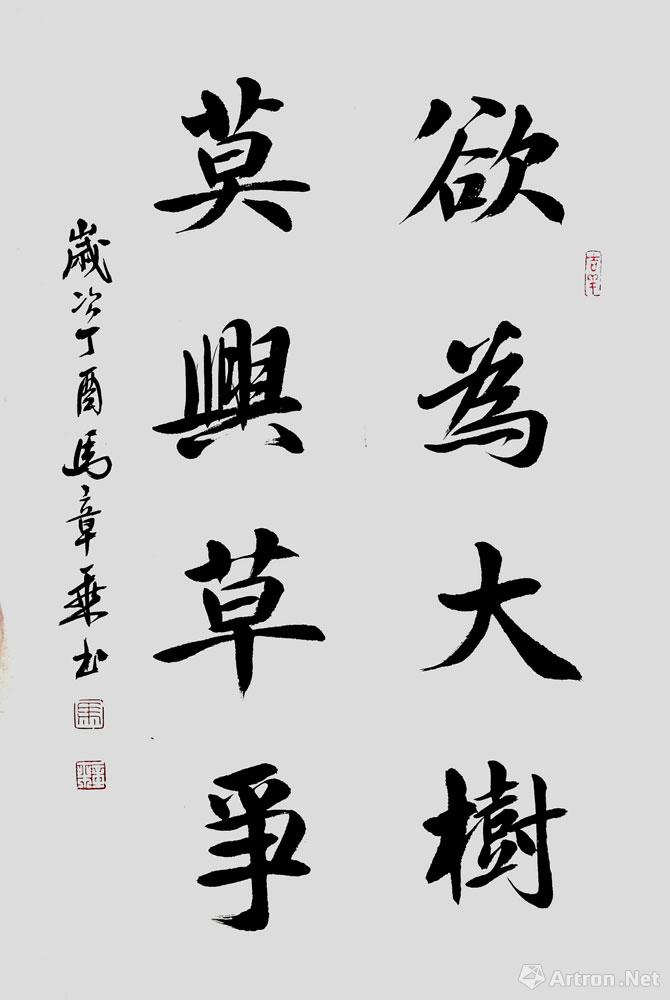 欲為大樹
莫與草爭
歲次丁酉馬章乘書
Artron.Net